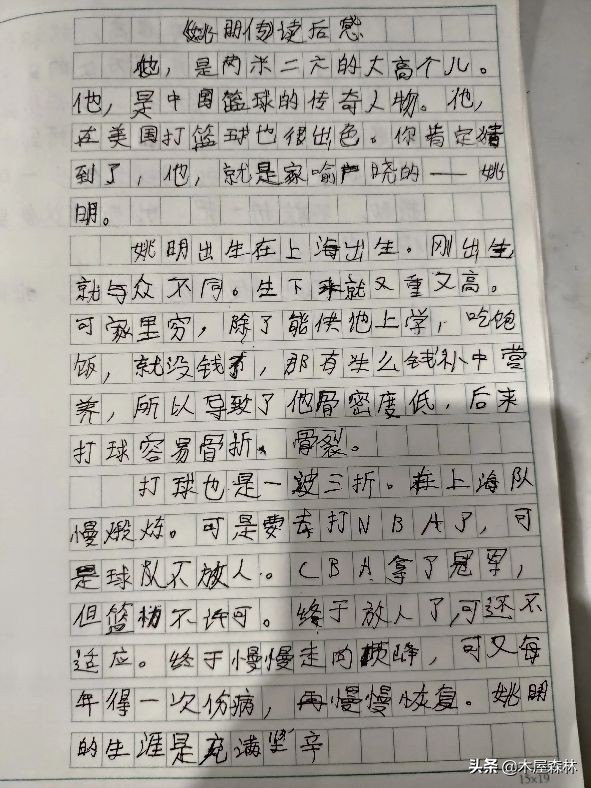 《姚明传》读后感
他，是两米二六的大高个儿。
他，是中国篮球的传奇人物。他，
在美国打篮球也很出色。你肯定猜
到了，他，就是家喻户晓的——姚
明。
姚明出生在上海出生。刚出生
就与众不同。生下来就又重又高。
可家里穷，除了能供他上学，吃饱
饭，就没钱了，那有什么钱补中营
养，所以导致了他骨密度低，后来
打球容易骨折、骨裂。
打球也是一波三折。在上海队
慢煅炼。可是要去打NBA了，可
是球队不放人。CBA拿了冠军，
但篮协不许可。终于放人了，可还不
适应。终于慢慢走向巅峰，可又每
年得一次伤病，再慢慢恢复。姚明
的生涯是充满坚辛
头条@木屋森林
15x19